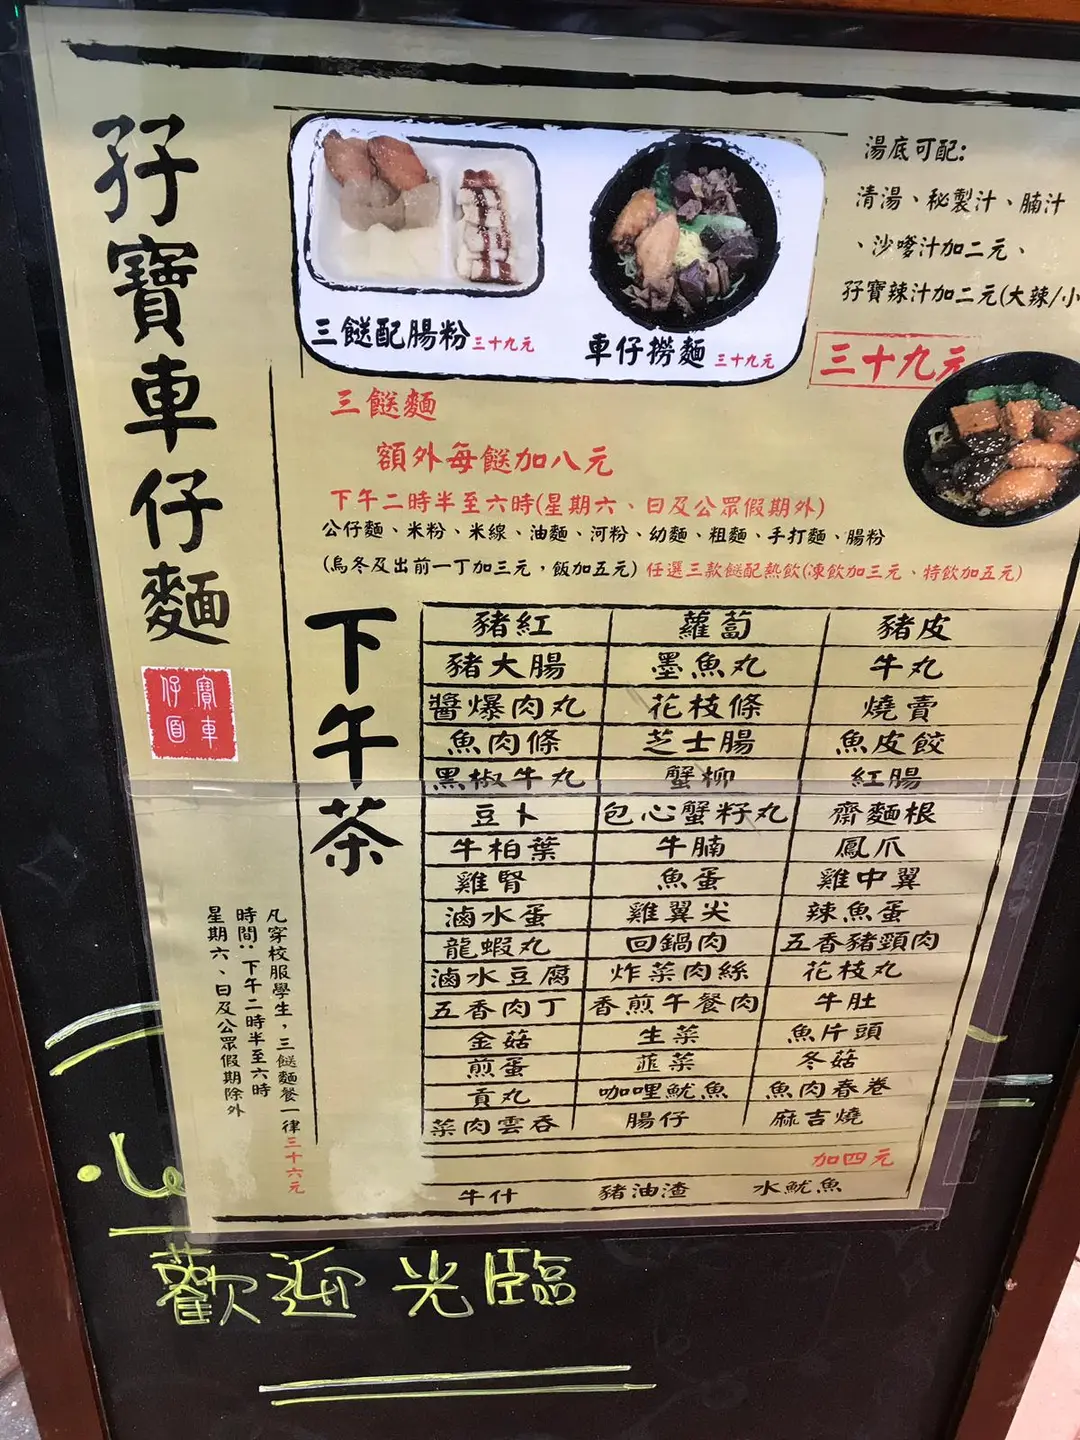 孖寶車仔麵
寶車
仔面
三餸配腸粉 三十九元
車仔撈麵 三十九元
湯底可配:
清湯、秘製汁、腩汁
、沙嗲汁加二元、
孖寶辣汁加二元(大辣/小
三十九元
三餸麵
額外每餸加八元
下午二時半至六時(星期六、日及公眾假期外)
公仔麵、米粉、米線、油麵、河粉、幼麵、粗麵、手打麵、腸粉
(烏冬及出前一丁加三元，飯加五元) 任選三款餸配熱飲(凍飲加三元、特飲加五元)
下午茶
豬紅 蘿蔔 豬皮
豬大腸 墨魚丸 牛丸
醬爆肉丸 花枝條 燒賣
魚肉條 芝士腸 魚皮餃
黑椒牛丸 蟹柳 紅腸
豆卜 包心蟹籽丸 齋麵根
牛柏葉 牛腩 鳳爪
雞腎 魚蛋 雞中翼
滷水蛋 雞翼尖 辣魚蛋
龍蝦丸 回鍋肉 五香豬頸肉
滷水豆腐 炸菜肉絲 花枝丸
五香肉丁 香煎午餐肉 牛肚
金菇 生菜 魚片頭
煎蛋 韮菜 冬菇
貢丸 咖哩魷魚 魚肉春卷
菜肉雲吞 腸仔 麻吉燒
加四元
牛什 豬油渣 水魷魚
凡穿校服學生，三餸麵餐一律三十六元
時間:下午二時半至六時
星期六、日及公眾假期除外
歡迎光臨